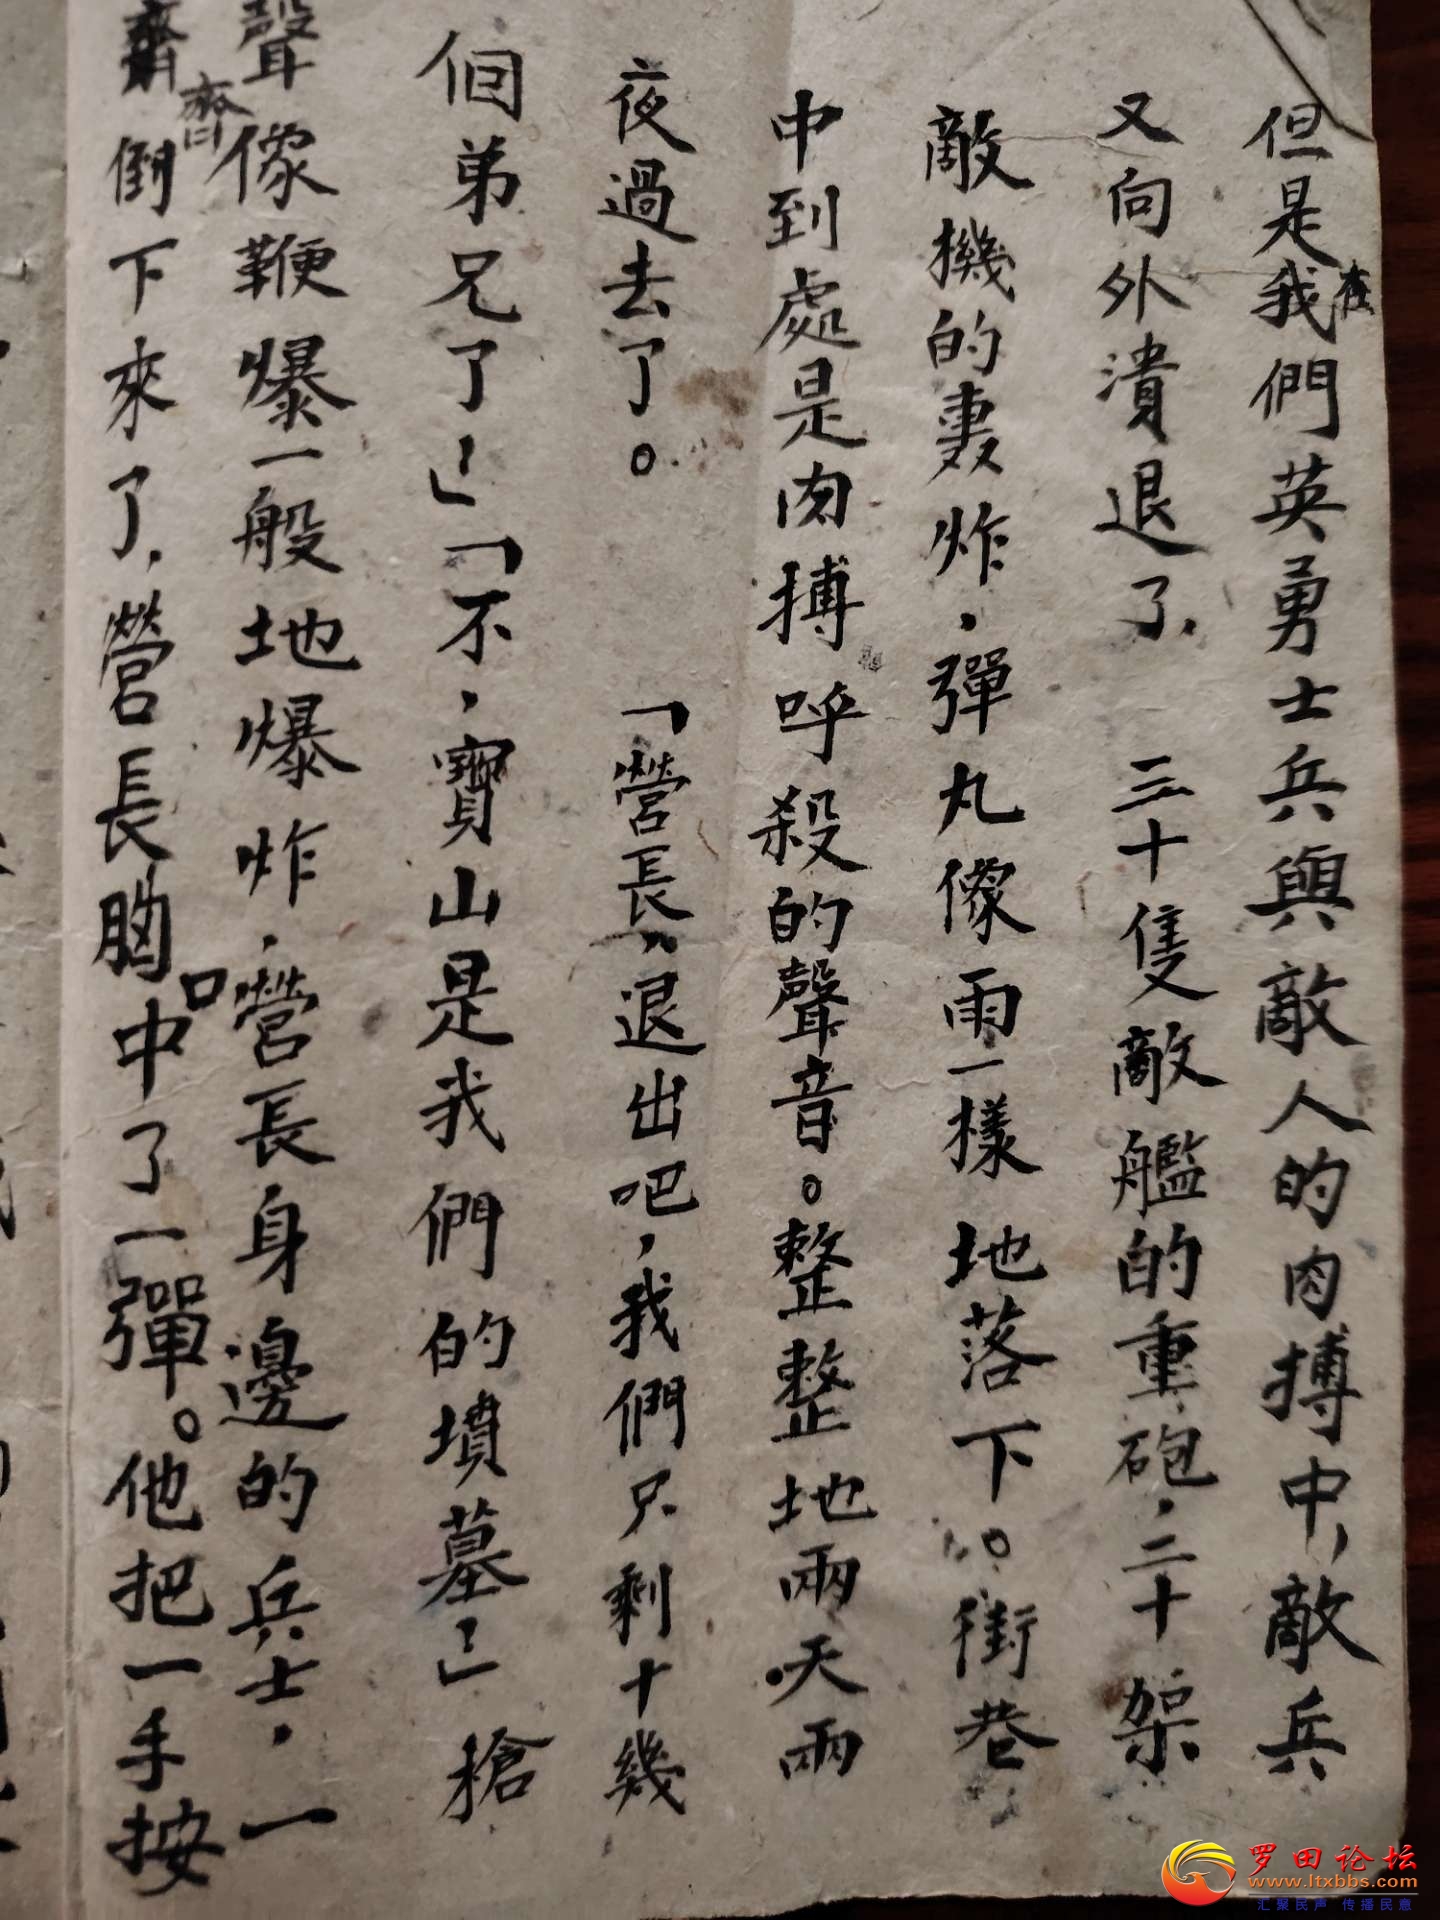 但是在我們英勇士兵與敵人的肉搏中，敵兵
又向外潰退了， 三十隻敵艦的重砲，二十架
敵機的轟炸，彈丸像雨一樣地落下。街巷
中到處是肉搏呼殺的聲音。整整地兩天兩
夜過去了。 「營長，退出吧，我們只剩十幾
個弟兄了！」「不，寶山是我們的墳墓！」槍
聲像鞭爆一般地爆炸，營長身邊的兵士，一
齊倒下來了，營長胸口中了一彈。他把一手按
齊
罗田论坛
www.ltxbbs.com
汇聚民声 传播民意